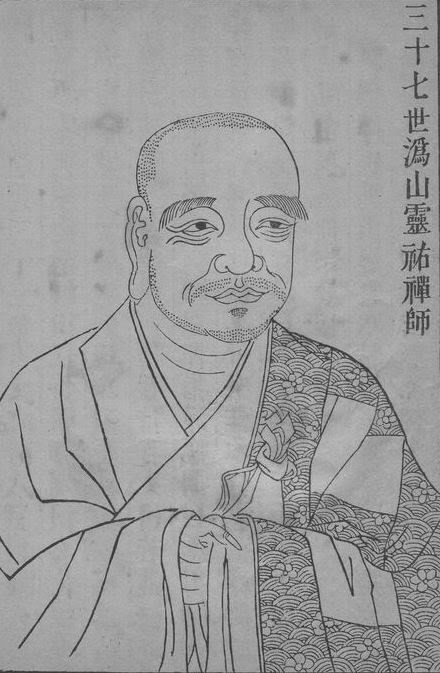 三十七世溈山靈祐禪師